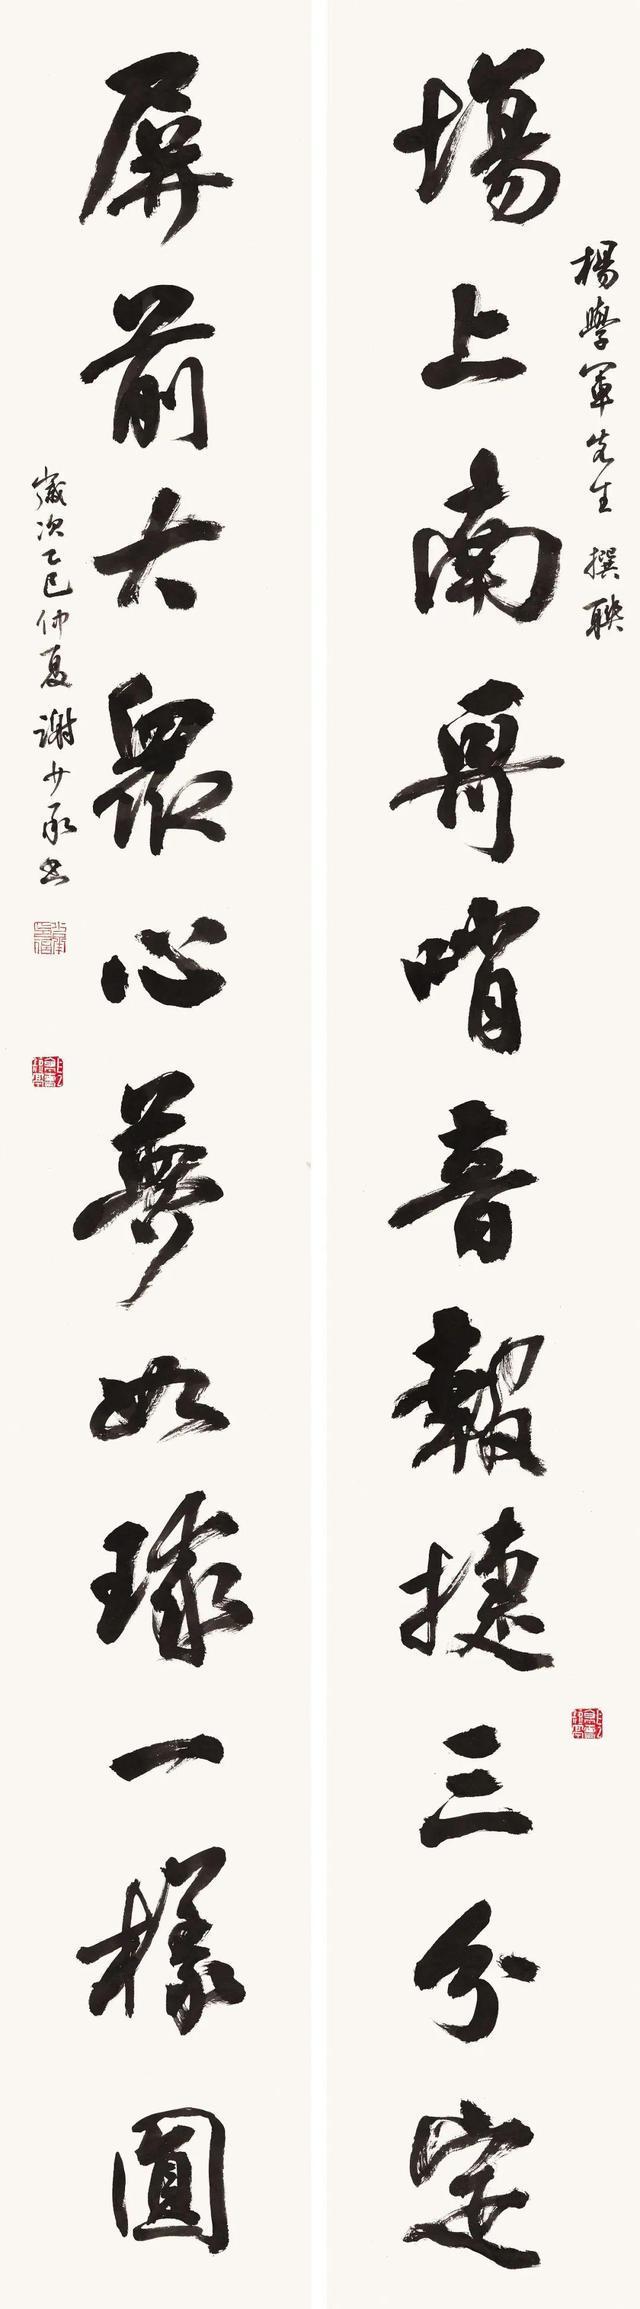 楊學軍先生 撰聯
場上南哥哨音報捷三分定
屏前大眾心夢如球一樣圓
歲次乙巳仲夏 謝少承書